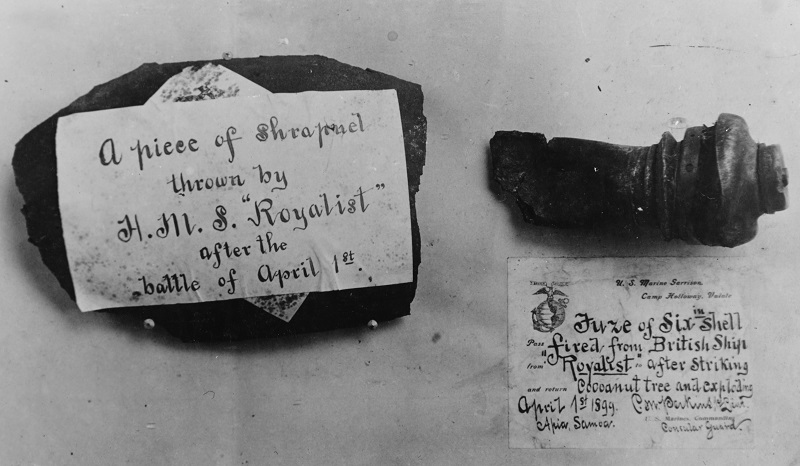 A piece of shrapnel
thrown by
H.M.S. "Royalist"
after the
battle of April 1st.
U. S. Marine Garrison,
Camp Holloway, Vailele
Fuze of Six in shell
Pass "fired from British Ship
from Royalist" after Striking
and return Cocoanut tree and exploding
April 1st 1899. C.M. Perkins 1st Lieut.
U. S. Marines, Commanding
Apia, Samoa. Consular Guard.